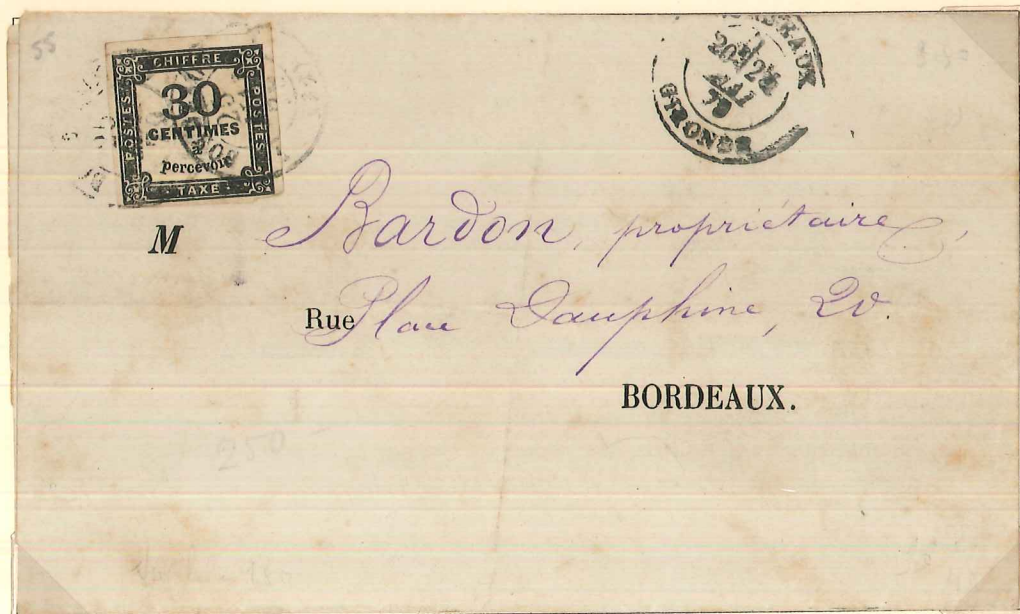 55
CHIFFRE
POSTES
30
CENTIMES
à
percevoir
POSTES
TAXE
BORDEAUX
MAI
78
GIRONDE
M Bardon, propriétaire,
Rue Place Dauphine, 20.
BORDEAUX.
250